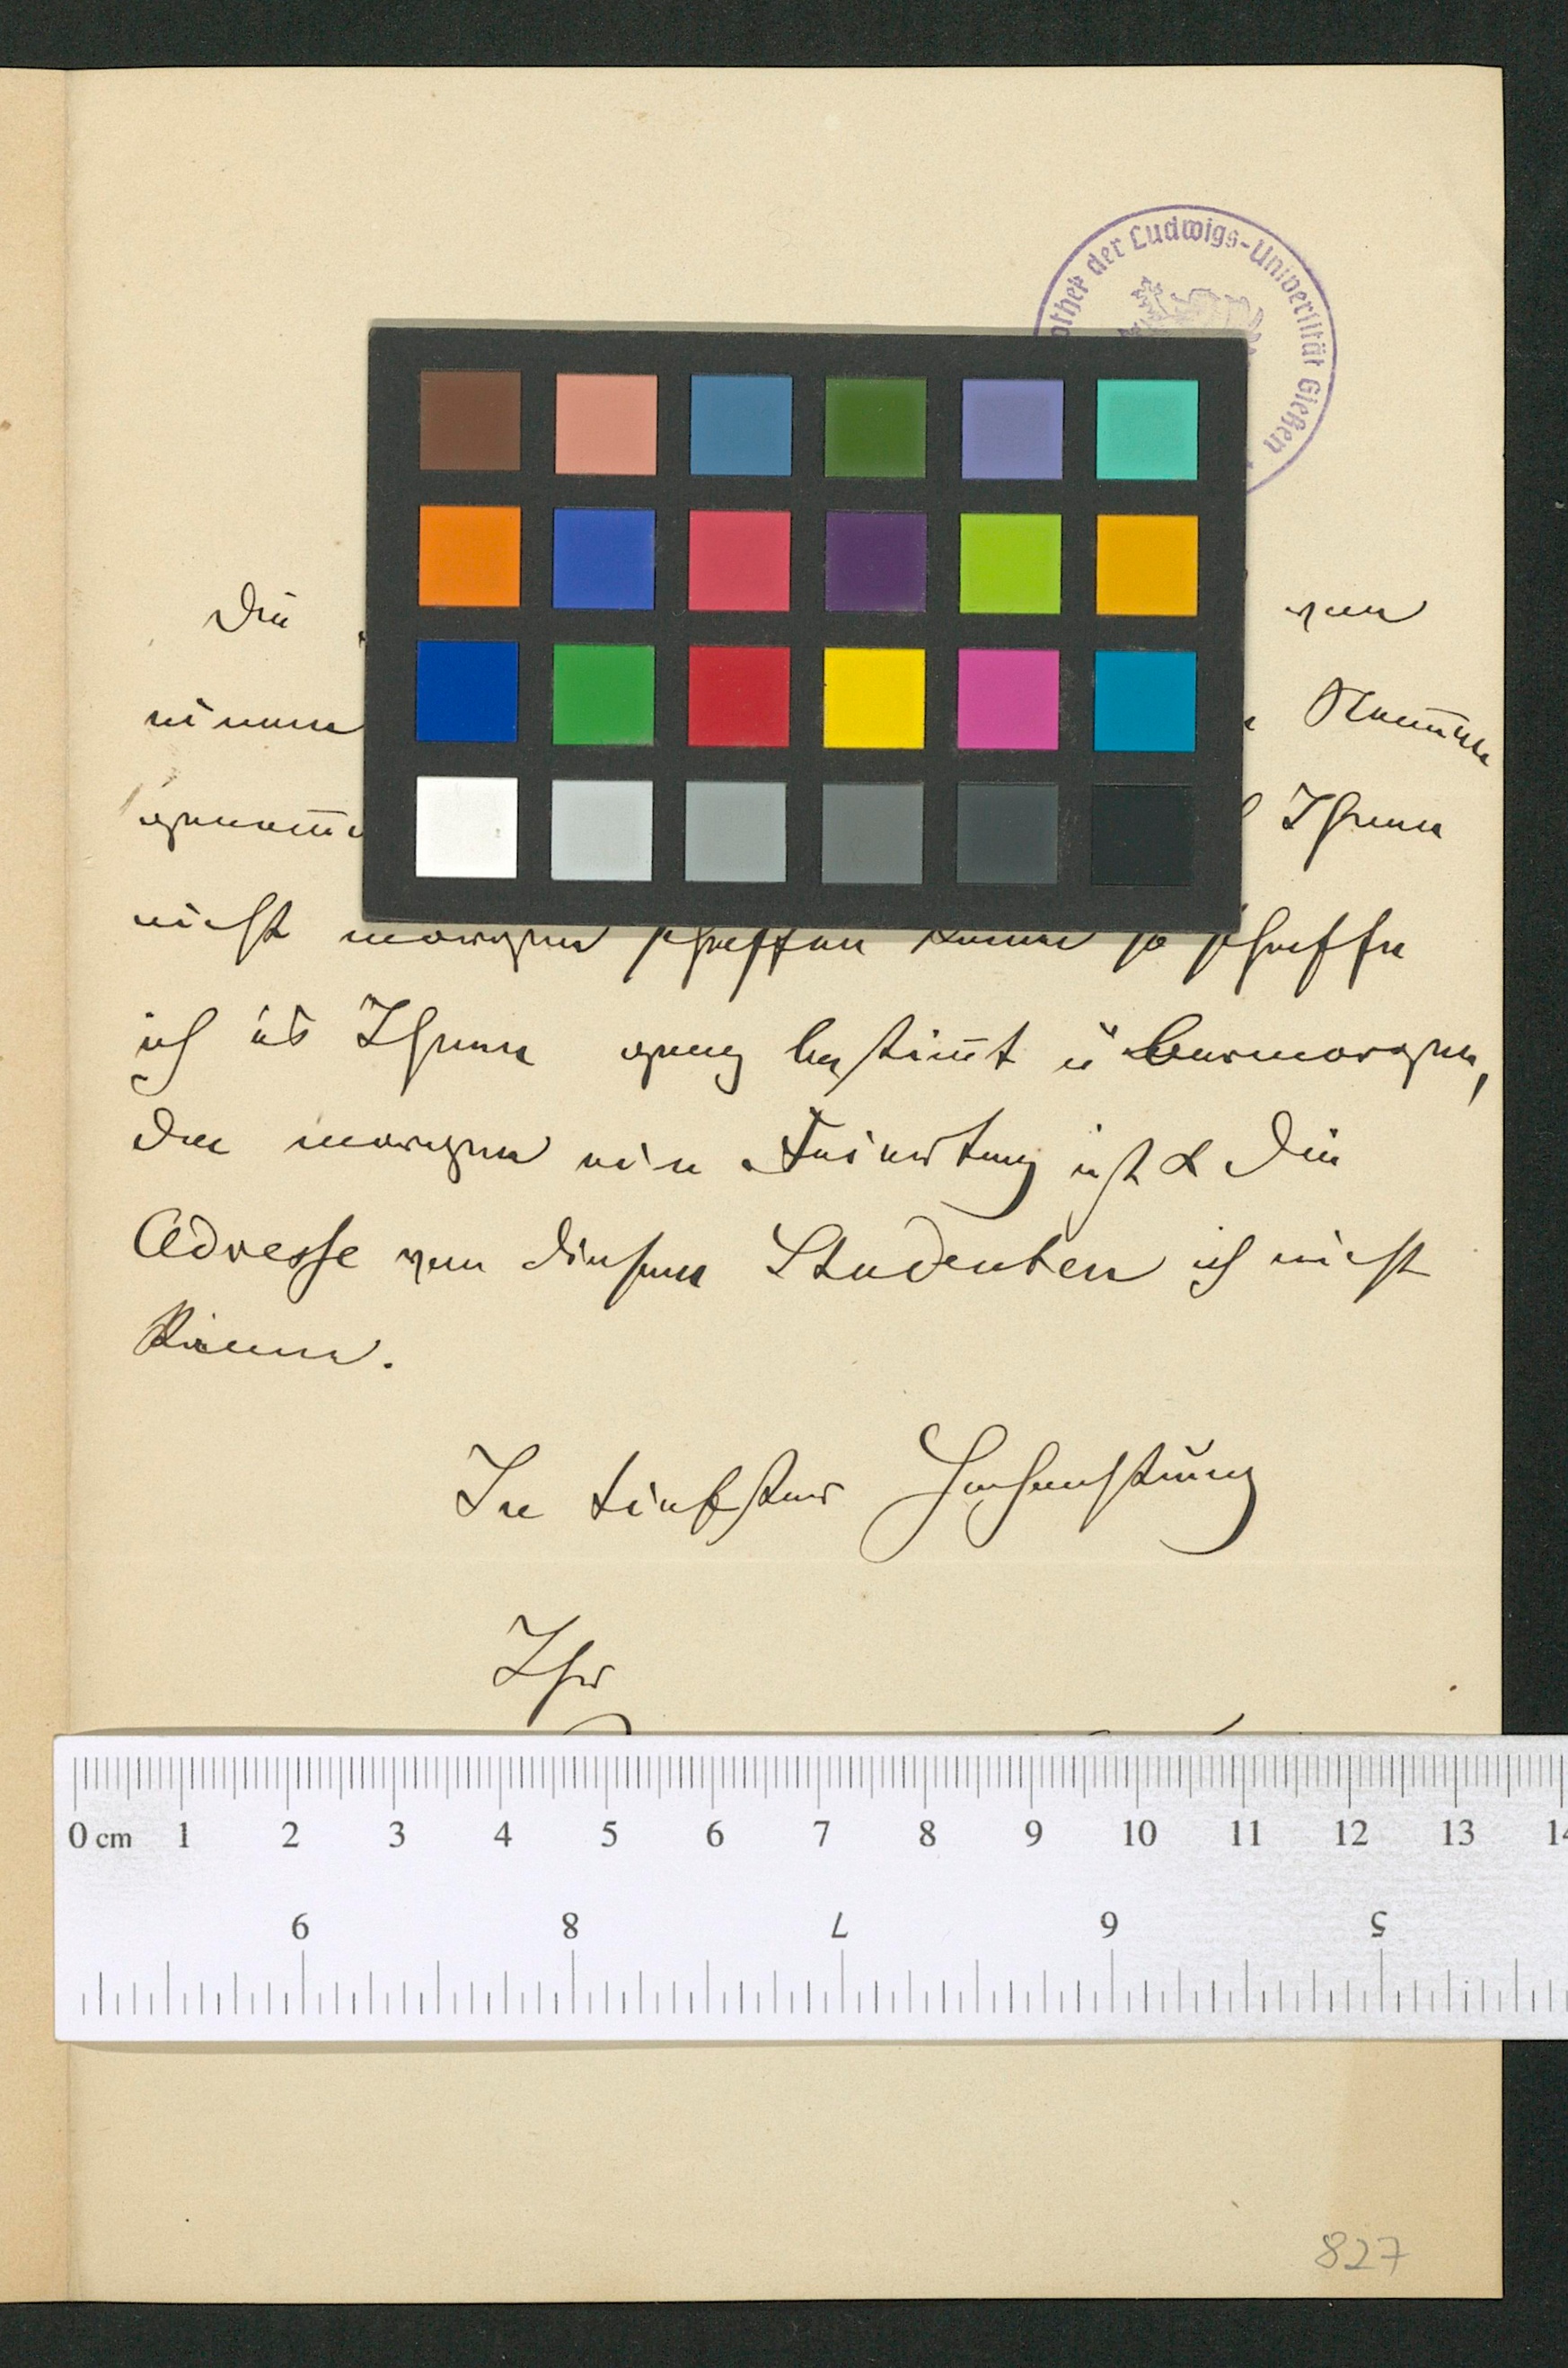 othek der Ludwigs-Universität Gießen
Die von
einem Stamme
genom Ihnen
nicht morgen schaffen kann so schaffe
ich es Ihnen ganz bestimmt übermorgen,
da morgen ein Feiertag ist & die
Adresse von diesem Studenten ich nicht
kenne.
In tiefster Hochachtung
Ihr
0 cm 1 2 3 4 5 6 7 8 9 10 11 12 13 14
9 8 7 6 5
827